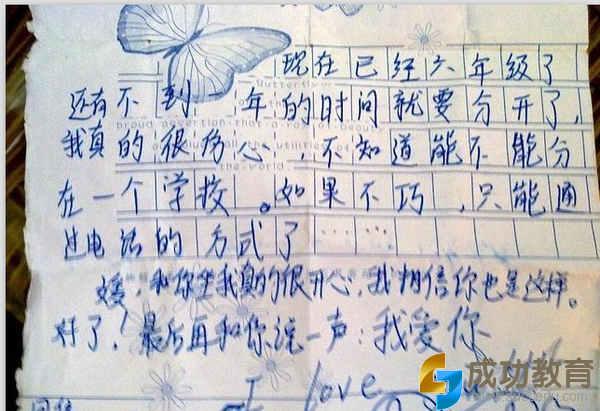 现在已经六年级了
还有不到一年的时间就要分开了,
我真的很伤心,不知道能不能分
在一个学校。如果不巧,只能通
过电话的方式了……
媛,和你坐我真的很开心,我相信你也是这样。
好了!最后再和你说一声:我爱你
I love
成功教育